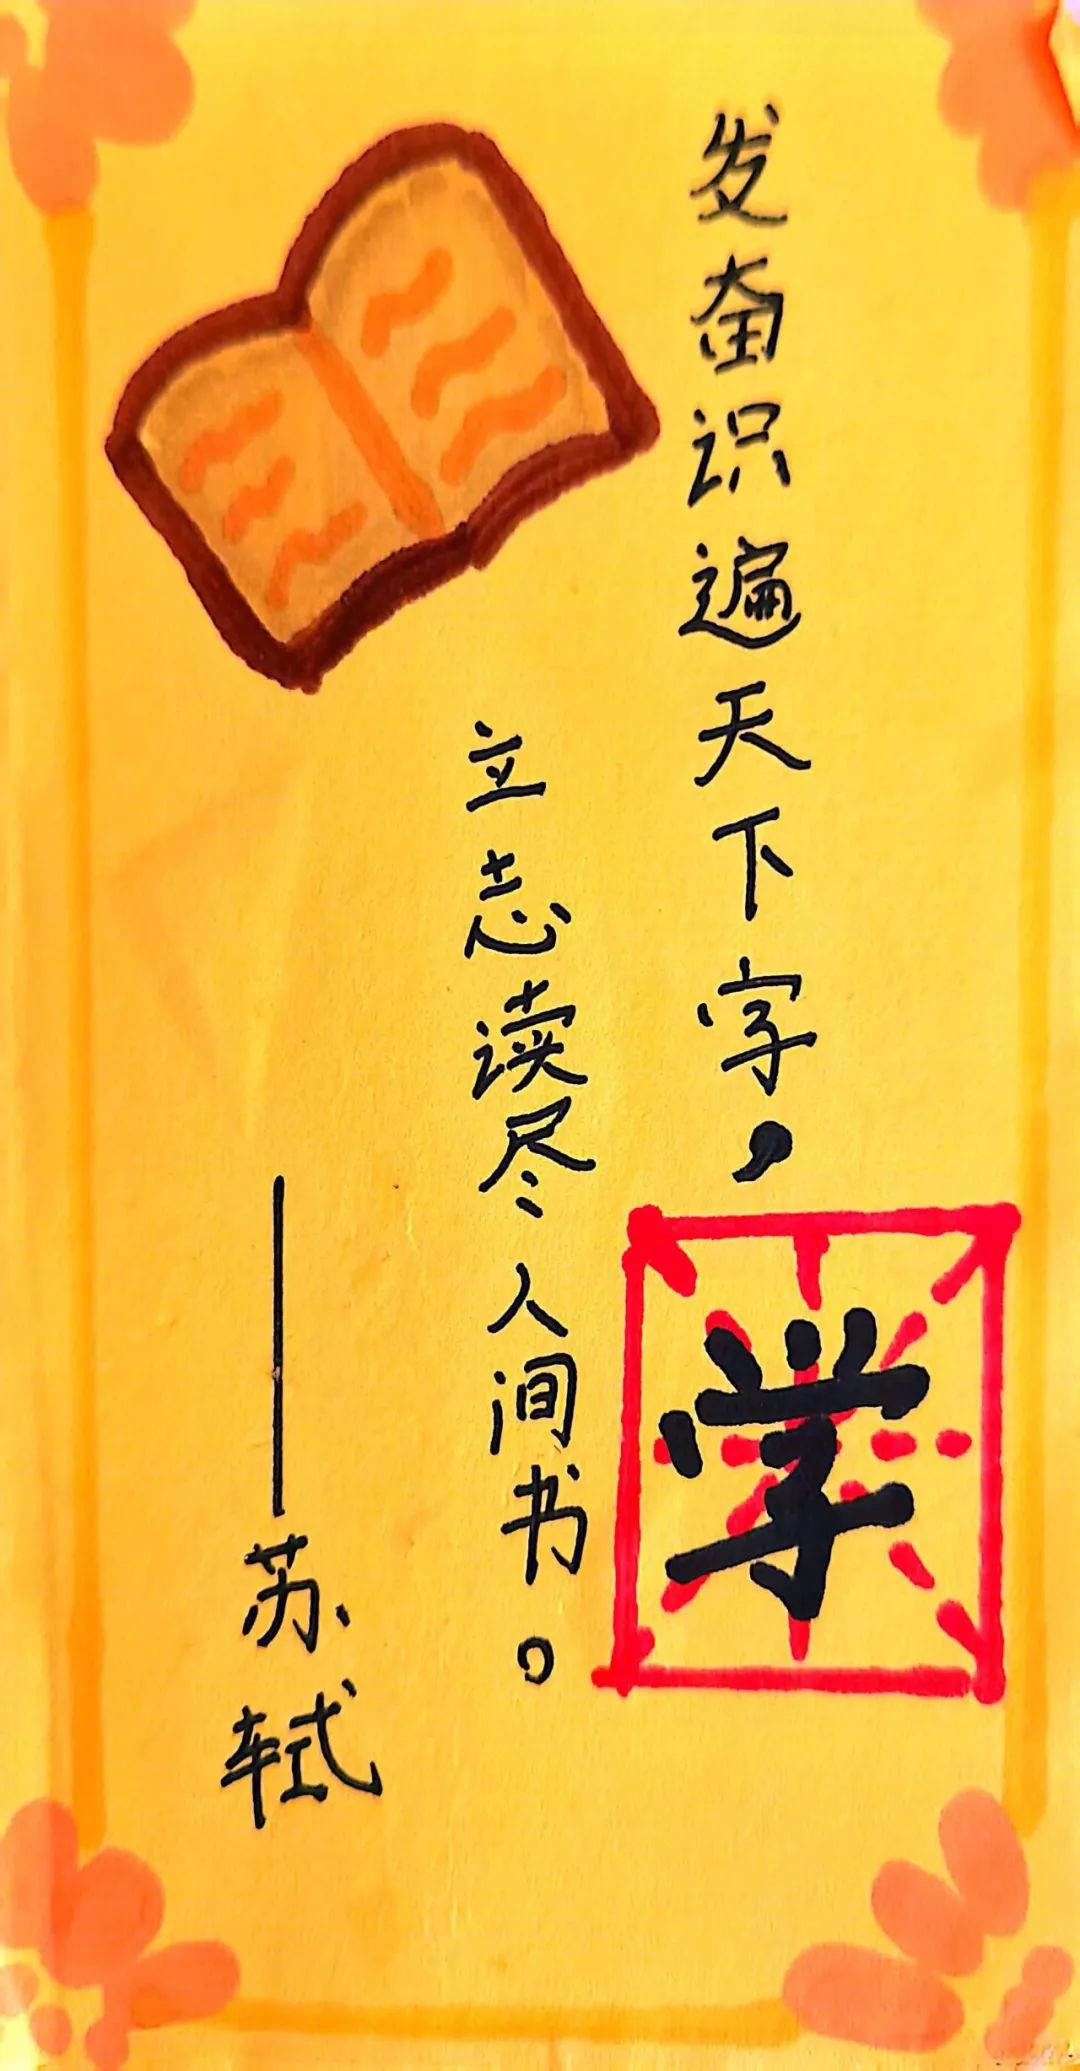 发奋识遍天下字，
立志读尽人间书。
——苏轼
学